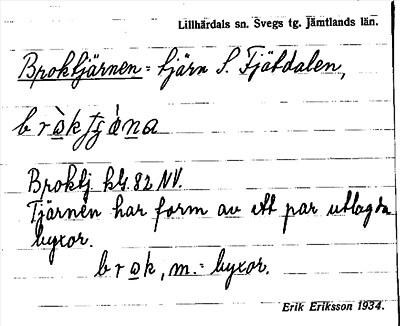 Lillhärdals sn. Svegs tg. Jämtlands län.
Broktjärnen = tjärn S. Fjätdalen,
Broktj. kbl. 82 NV.
Tjärnen har form av ett par utlagda
byxor.
brok, m. = byxor.
Erik Eriksson 1934.